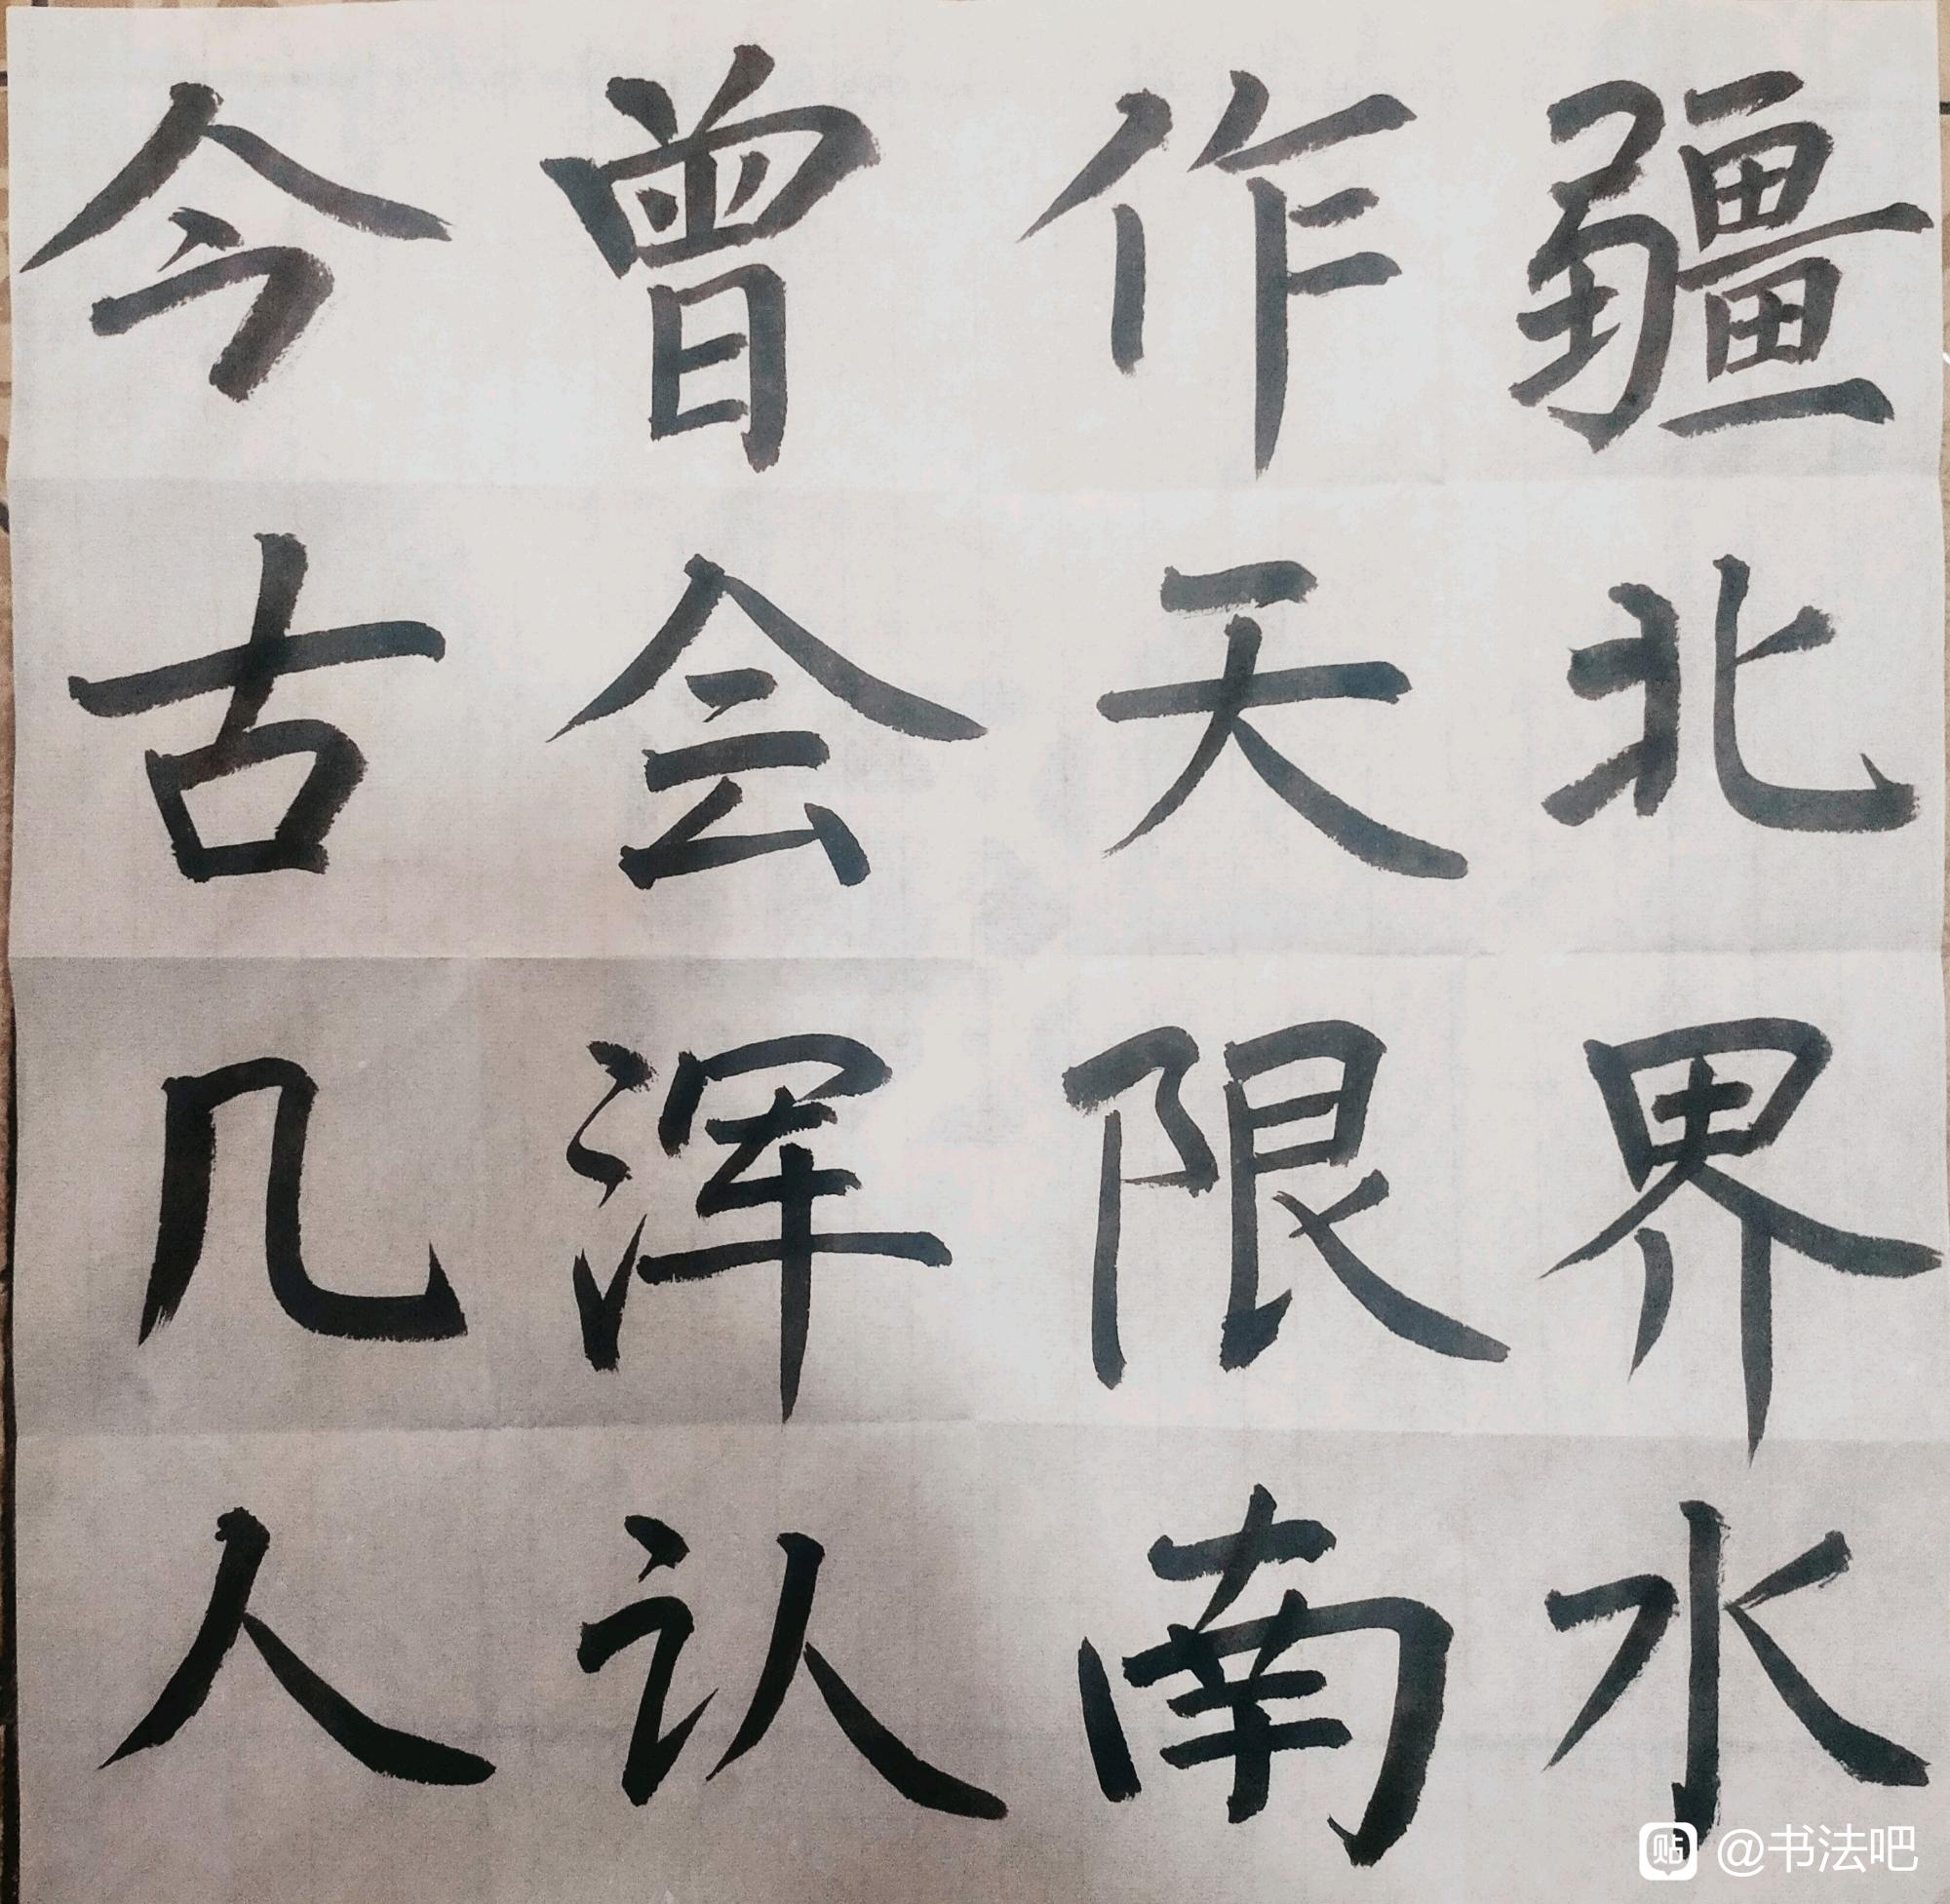 疆北界水
作天限南
曾会浑认
今古几人
贴 @书法吧